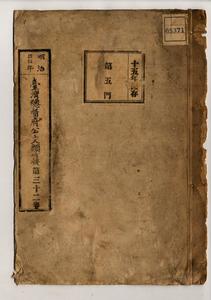 05371
十五年保存
第五門
明治
臺灣總督府公文類纂 第三十二卷